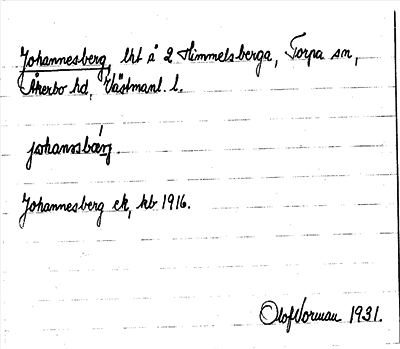 Johannesberg, lht å 2 Himmelsberga, Torpa sn,
Åkerbo hd, Västmanl. l.
johansbærj.
Johannesberg ek, kb 1916.
Olof Norman 1931.